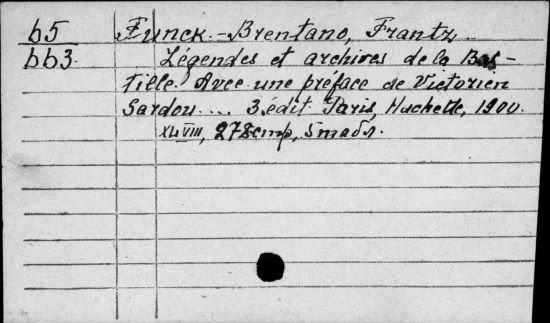 b5 Funck-Brentano, Frantz
bb3. Légendes et archives de la Bas-
tille. Avec une préface de Victorien
Sardou... 3.édit. Paris, Hachette, 1900.
XLVIII, 278 стр., 5 табл.